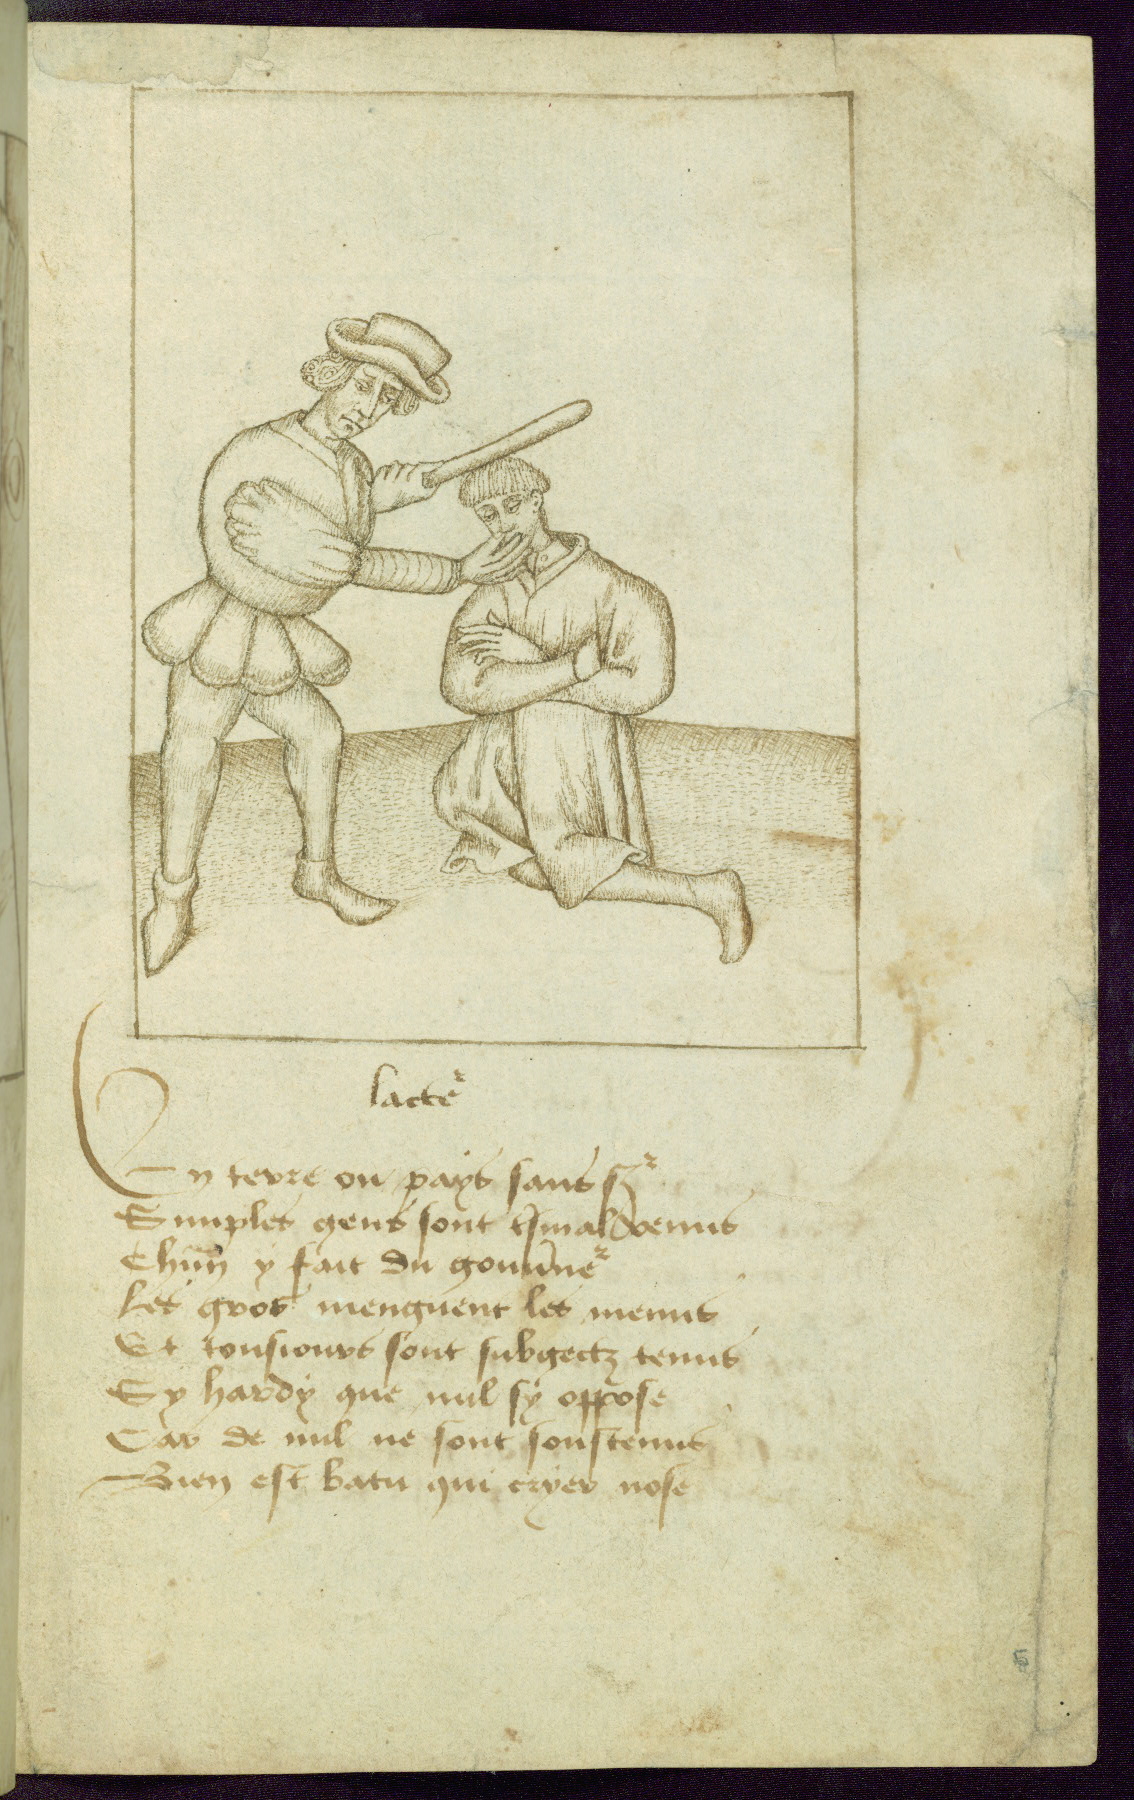 lacteᷣ
En terre ou pays sans sr̃
Simples gens sont tsmal venus
Chũn y fait du gouũneᷣ
Les gros menguent les menus
Et tousiours sont subgectz tenus
Sy hardy que nul sy oppose
Car de nul ne sont soustenus
Bien est batu qui cryer nose
5